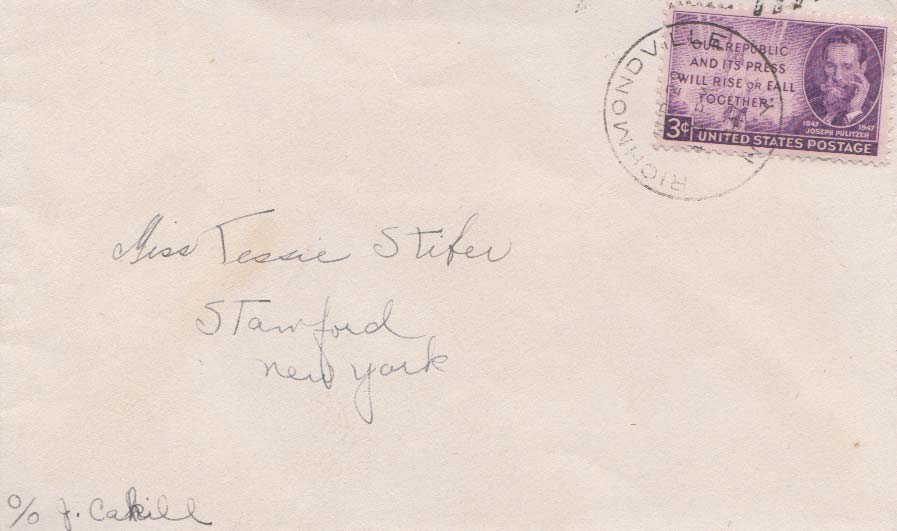 OUR REPUBLIC
AND ITS PRESS
WILL RISE OR FALL
TOGETHER"
1847 1947
JOSEPH PULITZER
3¢ UNITED STATES POSTAGE
RICHMONDVILLE
Miss Tessie Stifer
Stamford
New York
c/o J. Cahill